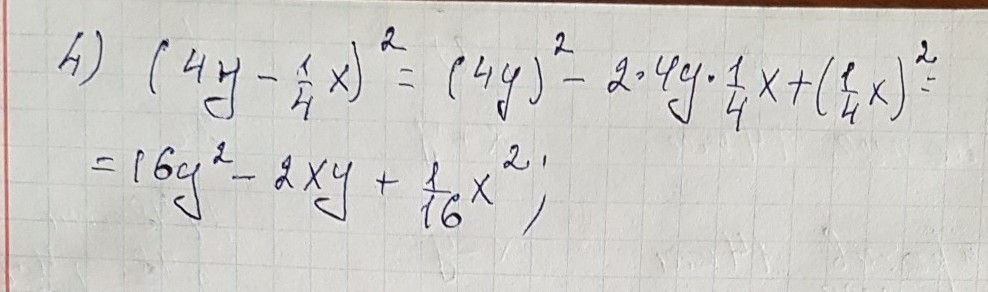 4) (4y - 1/4 x)² = (4y)² - 2·4y·1/4 x + (1/4 x)² =
= 16y² - 2xy + 1/16 x²;